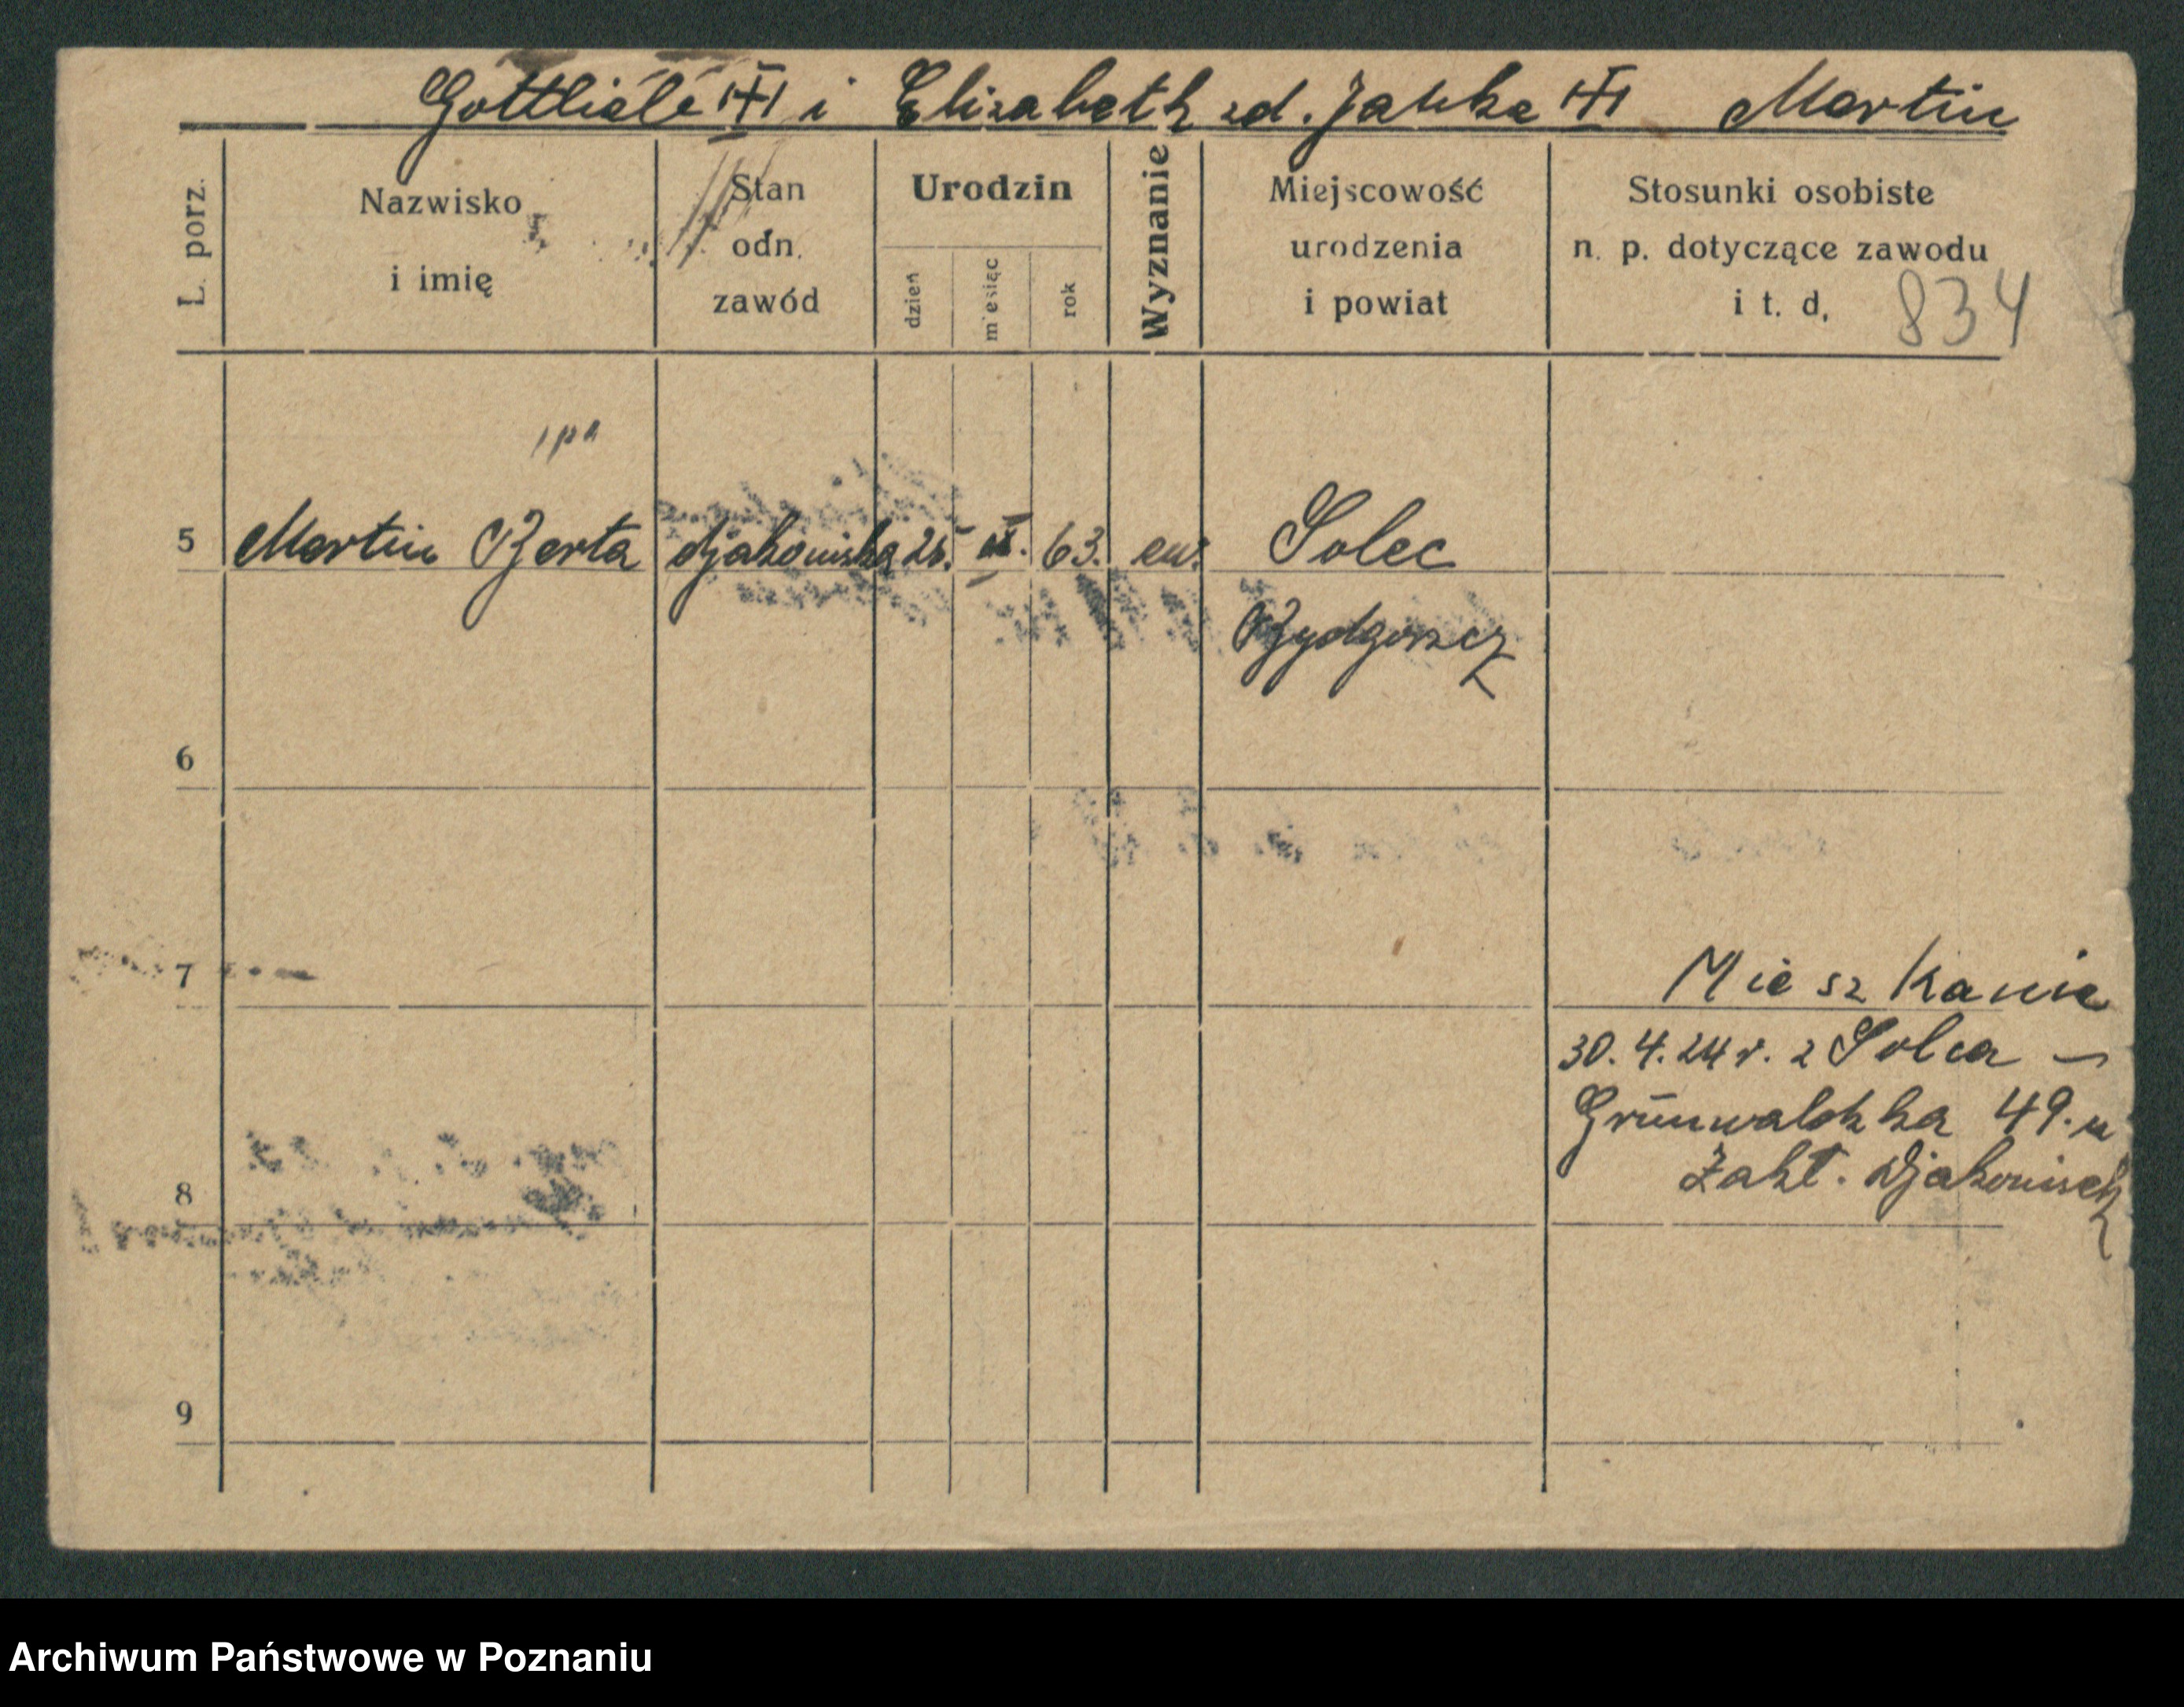 Gottlieb i Elisabeth zd. Jahke Martin
L. porz.
Nazwisko
i imię
Stan
odn.
zawód
Urodzin
dzień
miesiąc
rok
Wyznanie
Miejscowość
urodzenia
i powiat
Stosunki osobiste
n. p. dotyczące zawodu
i t. d.
834
5 Martin Berta djakoniska 25. 63. ew. Solec
Bydgoszcz
6
7
Mieszkanie
30. 4. 24 r. z Solca –
Grunwaldzka 49. u
Zakł. Djakonisek
8
9
Archiwum Państwowe w Poznaniu